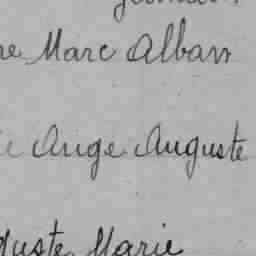 re Marc Alban
e Ange Auguste
guste Marie